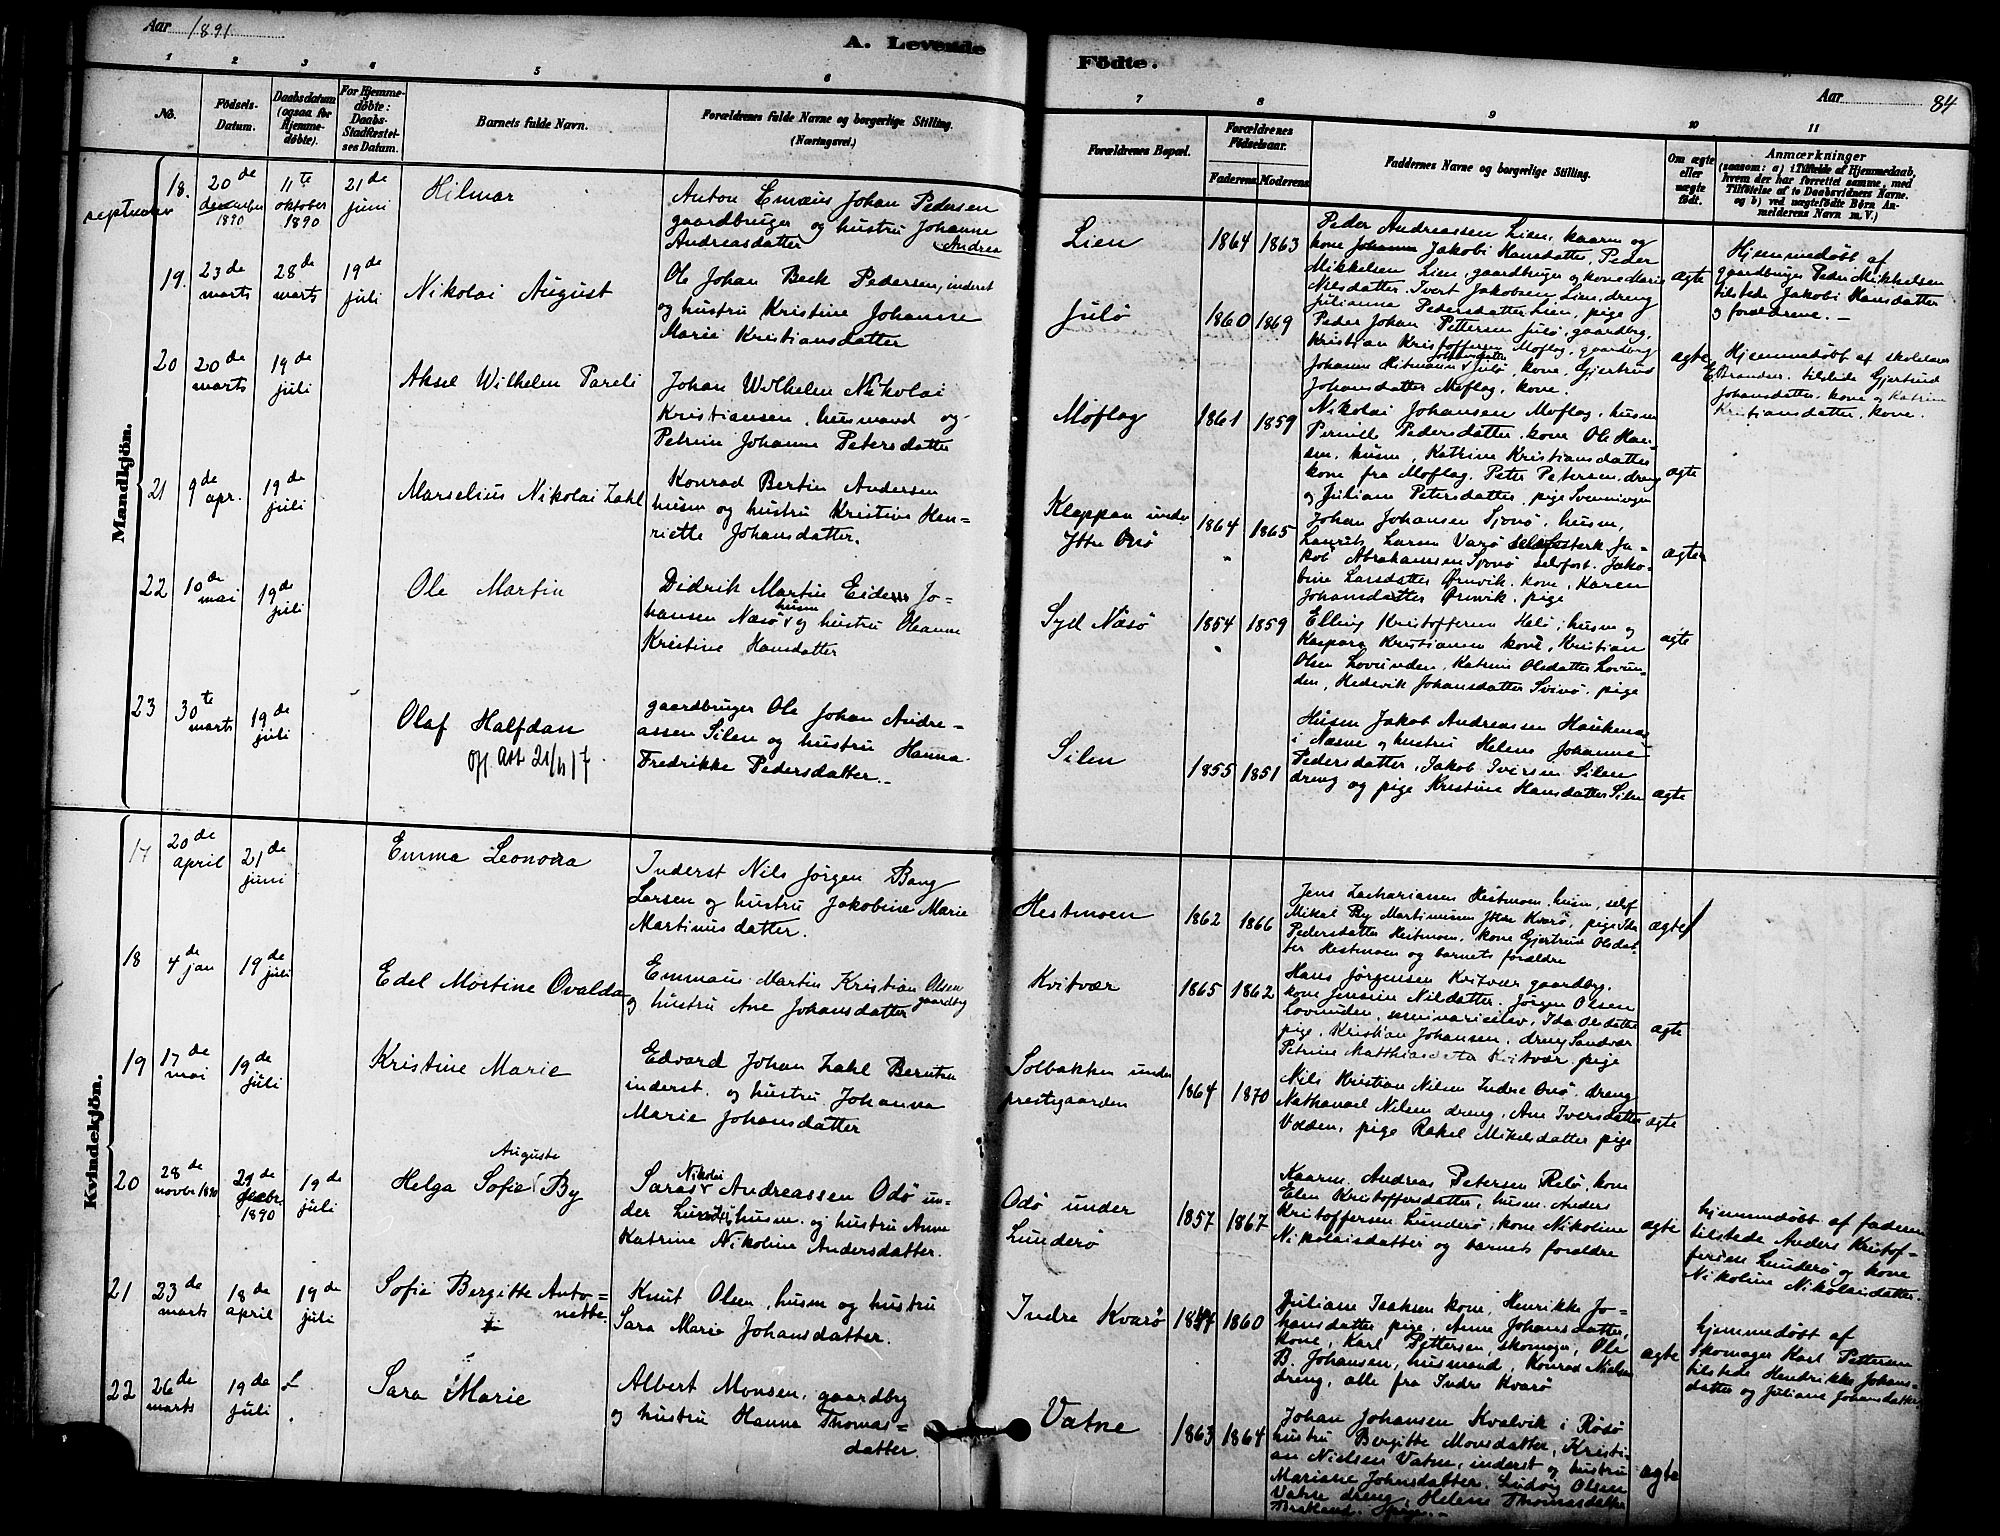 Aar 1891
A. Levende
Födte.
Aar
84
1
2
3
4
5
6
7
8
9
10
11
No.
Födsels-Datum.
Daabsdatum (ogsaa for Hjemmedöbte).
For Hjemmedöbte: Daabs-Stadfæstelses Datum.
Barnets fulde Navn.
Forældrenes fulde Navne og borgerlige Stilling. (Næringsvei.)
Forældrenes Bopæl.
Forældrenes Födselsaar.
Faderens
Moderens
Faddernes Navne og borgerlige Stilling.
Om ægte eller uægte født.
Anmærkninger
(saasom: a) i Tilfælde af Hjemmedaab, hvem der har forrettet samme, med Tilföielse af to Daabsvidners Navne. og b) ved uægtefödte Börn Anmelderens Navn m. V.)
Mandkjön.
18. 20de december 1890
september
11te oktober 1890
21de juni
Hilmar
Anton Emæus Johan Pedersen
gaardbruger og hustru Johanne
Andreasdatter Andrea
Lien
1864 1863
Peder Andreassen Lien, kaarm og
kone Johanna Jakobi Hansdatter, Peder
Mikkelsen Lien, gaardbruger og kone Marie
Nilsdatter. Ivert Jakobsen Lien, dreng
Julianna Pedersdatter Lien, pige
ægte
Hjemmedøbt af
gaardbruger Peder Mikkelsen
tilstede Jakobi Hansdatter
og forældrene.
19. 23de marts
28de marts
19de juli
Nikolai August
Ole Johan Beck Pedersen, inderst
og hustru Kristine Johanne
Marie Kristiansdatter
Julø
1860 1869
Peder Johan Pettersen Julø, gaardbrg,
Kristian Kristoffersen Moflag, gaardbrg
Johanna Johansdatter Julø, kone, Gjertrud
Johansdatter Moflag, kone.
ægte
Hjemmedøbt af skolelærer
E. Brandser, tilstede Gjertrud
Johansdatter, kone og Katrine
Kristiansdatter, kone.
20 20de marts
19de juli
Aksel Wilhelm Pareli
Johan Wilhelm Nikolai
Kristiansen, husmand og
Petrine Johanna Petersdatter
Moflag
1861 1859
Nikolai Johansen Moflag, husm
Pernille Pedersdatter, kone Ole Han-
sen, husm, Katrine Kristiansdatter
kone fra Moflag, Peter Petersen, dreng
og Juliane Petersdatter, pige Svenningen
ægte
21 9de apr.
19de juli
Marselius Nikolai Zahl
Konrad Bertin Andersen
husm og hustru Kristine Hen-
riette Johansdatter.
Kleppen under
Ytre Onø
1864 1865
Johan Johansen Sjonø, husm,
Laurits Larsen Varø Ja-
kob Abrahamsen Sjonø selfost. Jako-
bine Larsdatter Ørnvik, kone, Karen
Johansdatter Ørnvik, pige
ægte
22 10de mai
19de juli
Ole Martin
Didrik Martin Jo-
hansen Næsø husm og hustru Oleanne
Kristine Hansdatter
Syd Næsø
1854 1859
Elling Kristoffersen Selø, husm og
Kaspara Kristiansen kone, Kristian
Olsen Lovunden, Katrine Olsdatter Lovun-
den, Hedevik Johansdatter Svinø, pige
ægte
23 30te marts
19de juli
Olaf Halfdan
Ofl. Att 21/11 17
gaardbruger Ole Johan Andre-
assen Silen og hustru Hanna
Fredrikke Pedersdatter.
Silen
1855 1851
Husm Jakob Andreassen Haukenæs
i Næsne og hustru Helene Johanne
Pedersdatter, Jakob Iversen Silen
dreng og pige Kristine Hansdatter Silen
ægte
Kvindekjön.
17 20de april
21de juni
Emma Leonora
Inderst Nils Jørgen Bang
Larsen og hustru Jakobine Marie
Martinusdatter.
Hestmoen
1862 1866
Jens Zachariassen Hestmoen, husm, self
Mikal By Martinussen Ytre Kvarø, pige Ida
Pedersdatter Hestmoen, kone Gjertrud Olsdat-
ter Hestmoen og barnets forældre
ægte
18 4de jan
19de juli
Edel Mortine Ovalda
Emmaus Martin Kristian Olsen
gaardbg
og hustru Ane Johansdatter
Kvitvær
1865 1862
Hans Jørgensen Kvitvær gaardbg.
kone Jensine Nilsdatter. Jørgen Olsen
Lovunden, seminarieelev, Ida Olsdatter
pige, Kristian Johansen, dreng Sandvær
Petrine Matthiasdatter Kvitvær, pige
ægte
19 17de mai
19de juli
Kristine Marie
Edvard Johan Zahl Berntsen
inderst og hustru Johanna
Marie Johansdatter
Solbakken under
prestegaarden
1864 1870
Nils Kristian Nilsen Indre Onø, dreng
Nathanael Nilsen dreng, Ane Iversdatter
Vodden, pige Rakel Mikelsdatter pige
ægte
20 28de novbr 1890
29de 1890
19de juli
Helga Sofie Auguste By
Saras Nikolai Andreassen Odø un-
der Lunderø husm og hustru Anne
Katrine Nikoline Andersdatter.
Odø under
Lunderø
1857 1867
Kaarm. Andreas Petersen Selø, kone
Elen Kristoffersdatter, husm. Anders
Kristoffersen Lunderø, kone Nikoline
Nikolaisdatter og barnets forældre
ægte
hjemmedøbt af faderen
tilstede Anders Kristof-
fersen Lunderø og kone
Nikoline Nikolaisdatter.
21 23de marts
18de april
19de juli
Sofie Bergitte Anto-
nette
Knut Olsen, husm og hustru
Sara Marie Johansdatter.
Indre Kvarø
1860
Juliane Isaksen kone, Henrikke Jo-
hansdatter pige, Anne Johansdatter,
kone, Karl Pettersen, skomager, Ole
B. Johansen, husmand, Konrad Nielsen
dreng, alle fra Indre Kvarø
ægte
hjemmedøbt af
skomager Karl Pettersen
tilstede Hendrikke Johans-
datter og Juliane Johansdatter
22 26de marts
19de juli
Sara Marie
Albert Monsen, gaardbg
og hustru Hanna Thomas-
datter.
Vatne
1863 1864
Johan Johansen Kvalvik i Røsø
hustru Bergitte Monsdatter, Kristi-
an Nielsen Vatne, inderst og hustru
Mariane Johansdatter. Ludvig Olsen
Vatne dreng, Helene Thomasdatter
ægte